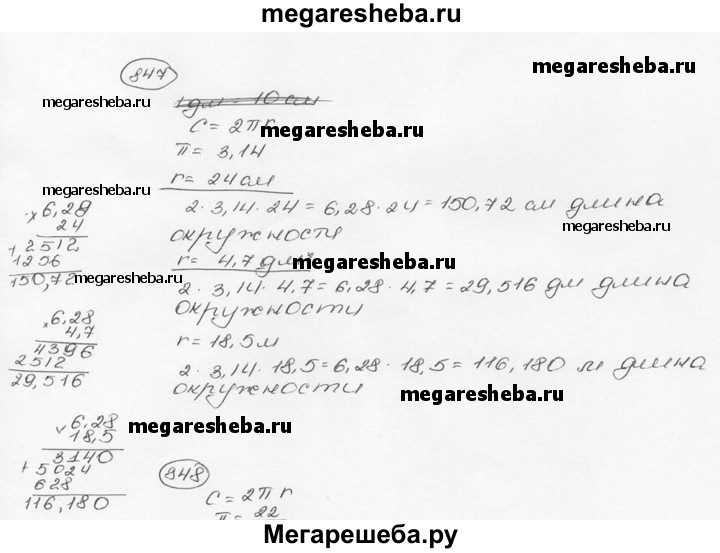 megaresheba.ru
847
megaresheba.ru
megaresheba.ru
1 дм = 10 см
C = 2πr
megaresheba.ru
π = 3,14
r = 24 см
2 · 3,14 · 24 = 6,28 · 24 = 150,72 см длина
megaresheba.ru
окружности
r = 4,7 дм
megaresheba.ru
2 · 3,14 · 4,7 = 6,28 · 4,7 = 29,516 дм длина
окружности
r = 18,5 м
2 · 3,14 · 18,5 = 6,28 · 18,5 = 116,180 м длина
окружности
megaresheba.ru
× 6,28
24
+ 2512
1256
150,72
megaresheba.ru
× 6,28
4,7
4396
2512
29,516
× 6,28
18,5
megaresheba.ru
3140
+ 5024
628
116,180
848
C = 2πr
π = 22
Мегарешеба.ру